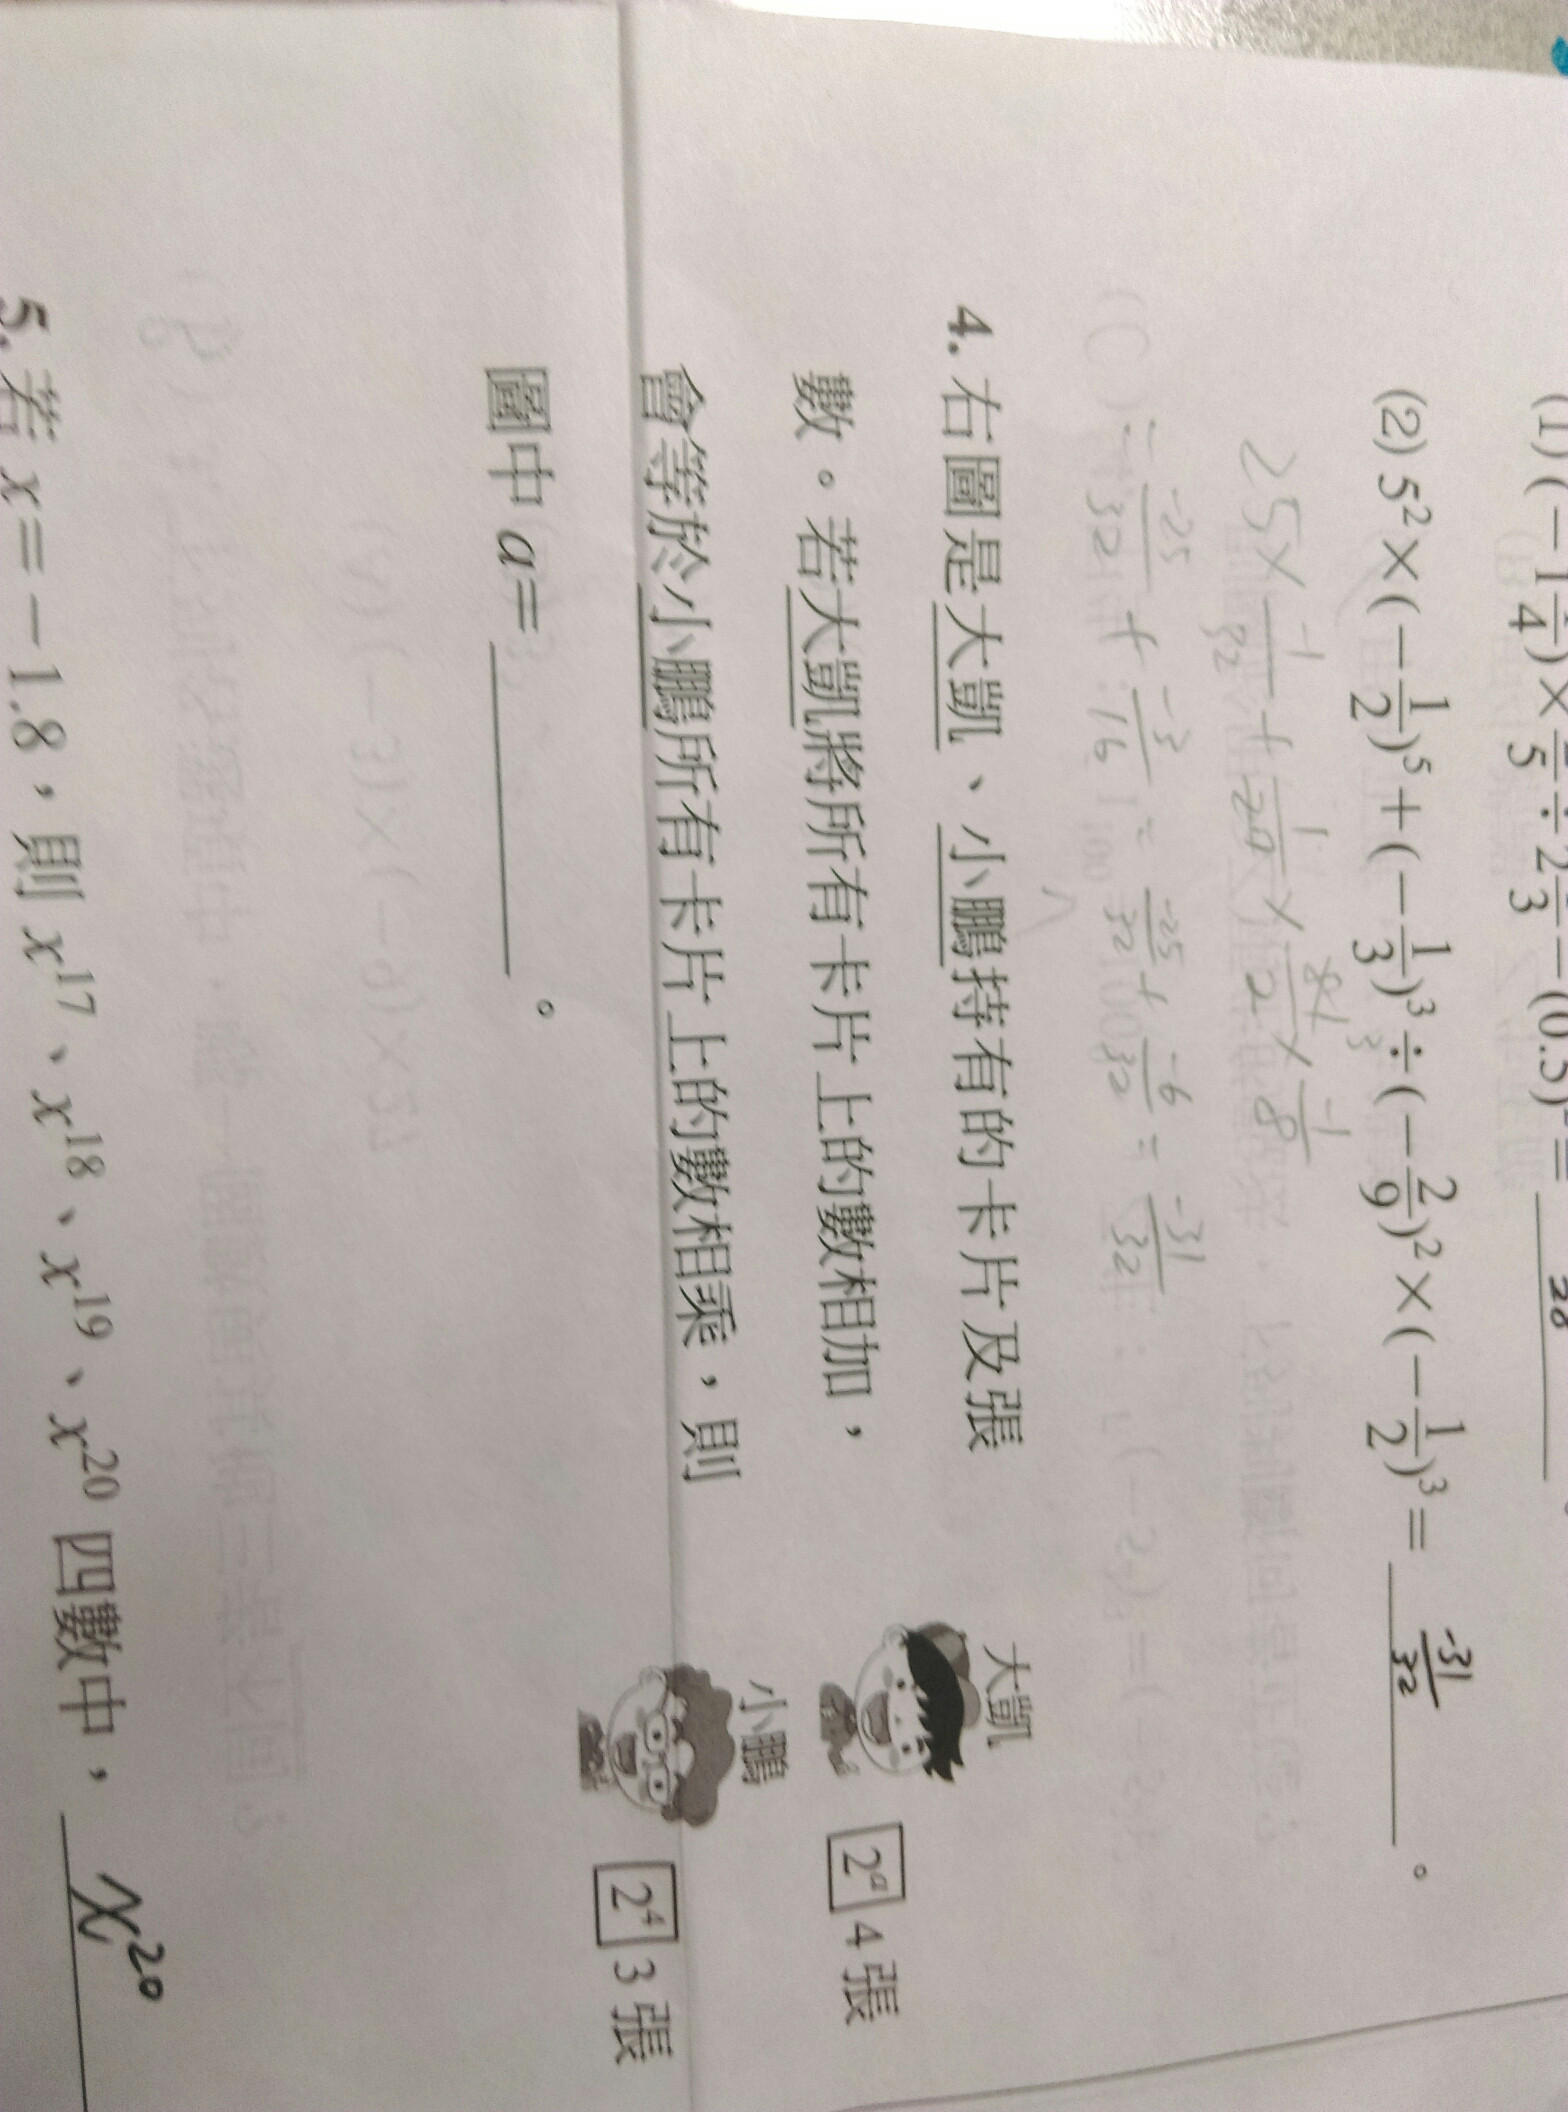 (1) (-1 1/4) × /5 ÷ 2 /3 - (0.5) = 28
(2) 5² × (-1/2)⁵ + (-1/3)³ ÷ (-2/9)² × (-1/2)³ = -31/32 。
25 × -1/32 +
= -25/32 + -3/16 = -25/32 + -6/32 = -31/32
4. 右圖是大凱、小鵬持有的卡片及張
數。若大凱將所有卡片上的數相加,
會等於小鵬所有卡片上的數相乘,則
圖中 a= 。
大凱
2ᵃ 4張
小鵬
2⁴ 3張
5. 若 x=-1.8,則 x¹⁷、x¹⁸、x¹⁹、x²⁰ 四數中, x²⁰